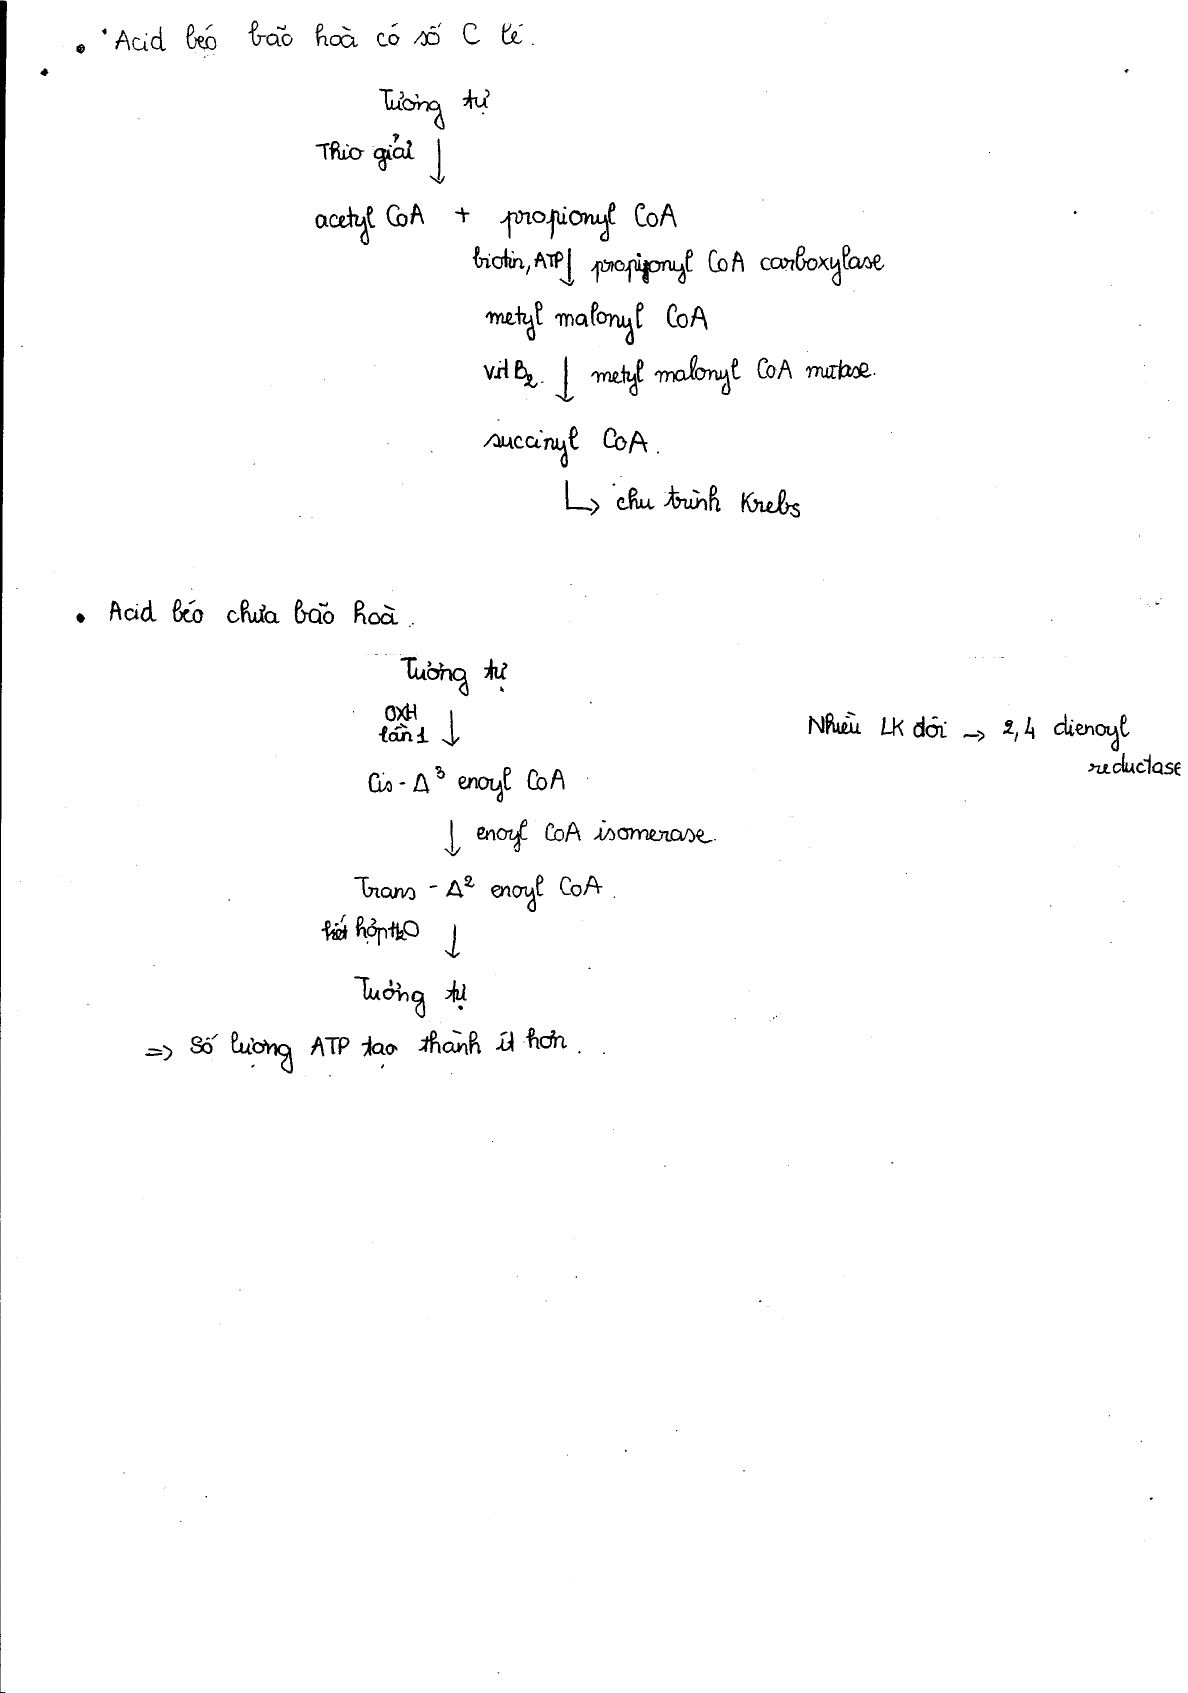 • Acid béo bão hoà có số C lẻ.
Tương tự
Thio giải ↓
acetyl CoA + propionyl CoA
biotin, ATP ↓ propionyl CoA carboxylase
metyl malonyl CoA
vit B2. ↓ metyl malonyl CoA mutase.
succinyl CoA.
↳ chu trình Krebs
• Acid béo chưa bão hoà.
Tương tự
OXH
lần 1 ↓
Nhiều LK đôi → 2,4 dienoyl
reductase
Cis - Δ³ enoyl CoA
↓ enoyl CoA isomerase.
Trans - Δ² enoyl CoA.
hợp H2O ↓
Tương tự
=> Số lượng ATP tạo thành ít hơn.